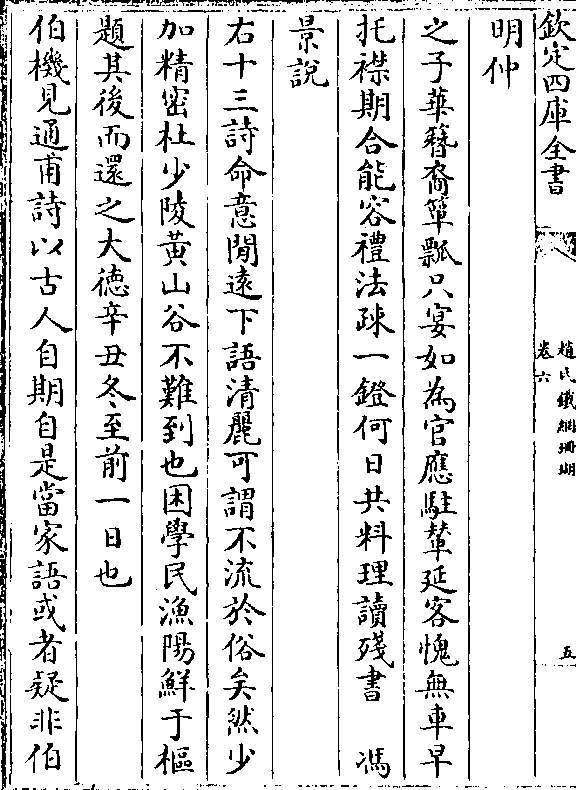 欽定四庫全書
趙氏鐵網珊瑚
卷六
五
明仲
之子華簪裔簞瓢只宴如為官應駐輦延客愧無車早
托襟期合能容禮法疎一鐙何日共料理讀殘書　馮
景說
右十三詩命意閒遠下語清麗可謂不流於俗矣然少
加精密杜少陵黃山谷不難到也困學民漁陽鮮于樞
題其後而還之大德辛丑冬至前一日也
伯機見通甫詩以古人自期自是當家語或者疑非伯